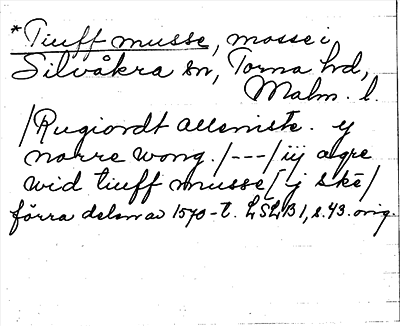 *Tiuff musse, mosse i
Silvåkra sn, Torna hd,
Malm. l.
/Rugiordt alleniste. y
norre wong. /---/ iij agre
wid tiuff musse/ j skē/
förra delen av 1570-t. LSLB 1, s. 43. orig.